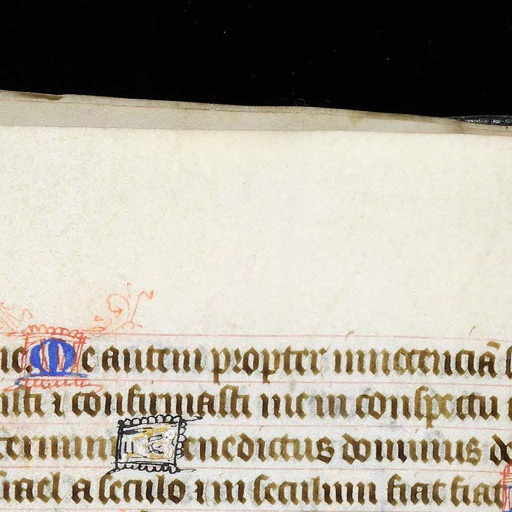 Me autem propter innocenciā
isti ⁊ confirmasti me in conspectu
Benedictus dominus
a seculo ⁊ in seculum fiat fiat